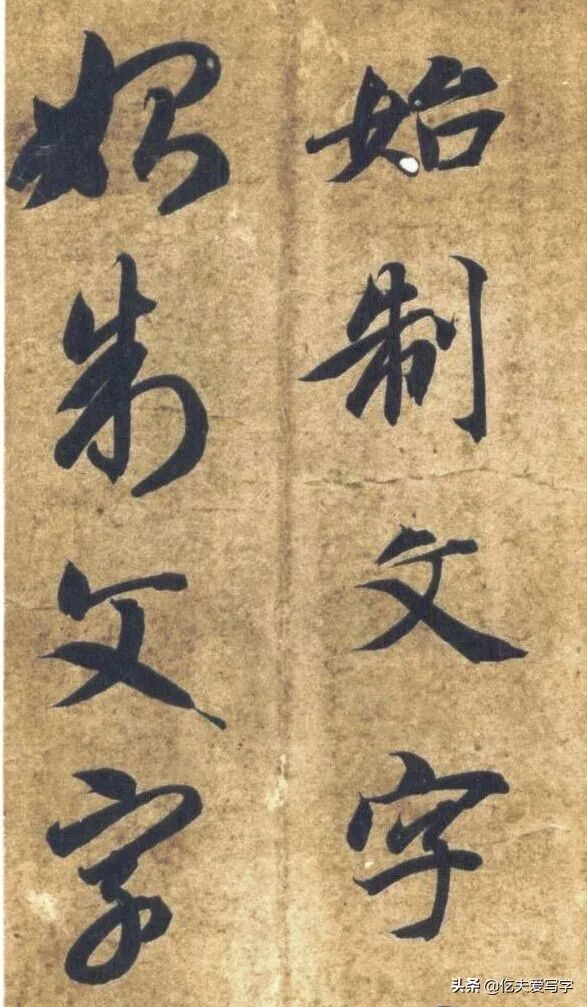 始制文字
始制文字
头条 @仡夫爱写字